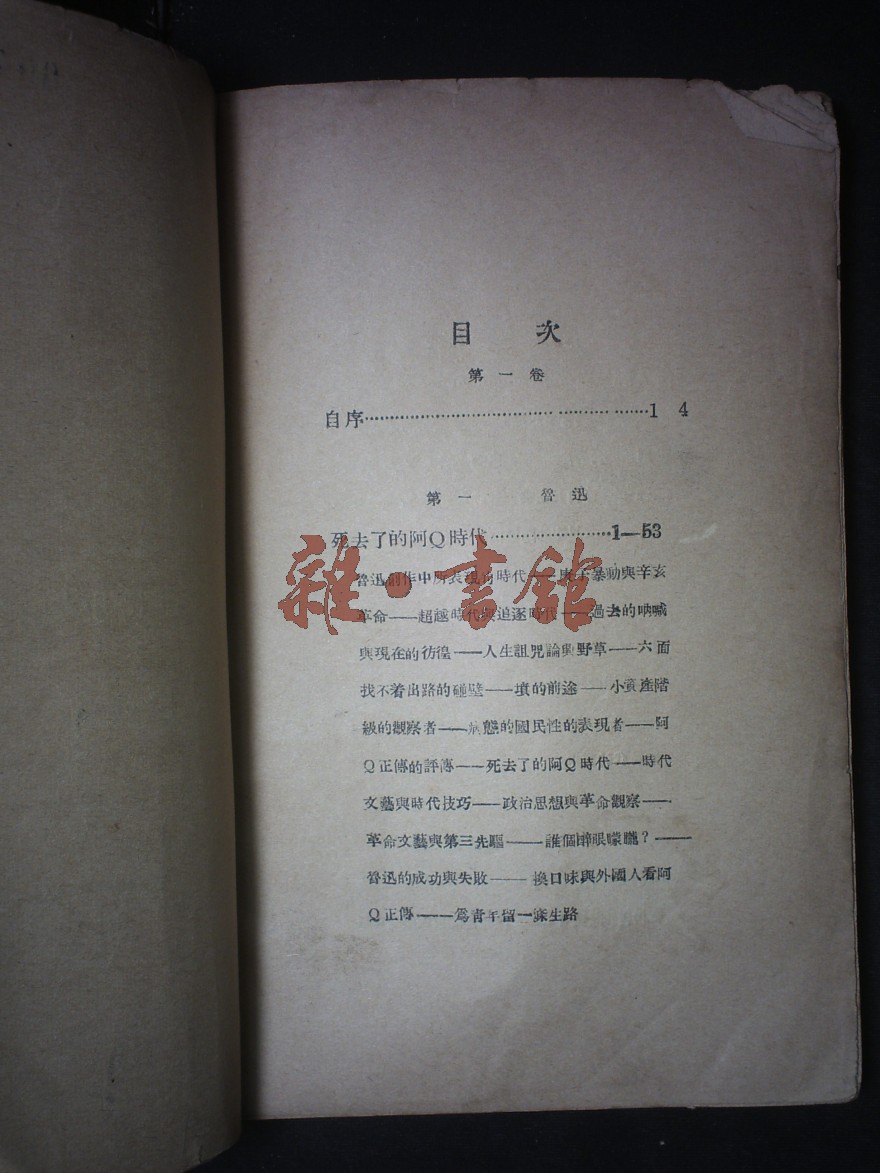 目 次
第 一 卷
自序…………………………………………1 4
第 一 魯 迅
死去了的阿Q時代……………………1—53
魯迅創作中所表現的時代——庚子暴動與辛亥
革命——超越時代與追逐時代——過去的吶喊
與現在的彷徨——人生詛咒論與野草——六面
找不着出路的碰壁——墳的前途——小資產階
級的觀察者——病態的國民性的表現者——阿
Q正傳的評傳——死去了的阿Q時代——時代
文藝與時代技巧——政治思想與革命觀察——
革命文藝與第三先驅——誰個醉眼朦朧？——
魯迅的成功與失敗——換口味與外國人看阿
Q正傳——爲青年留一條生路
雜·書館